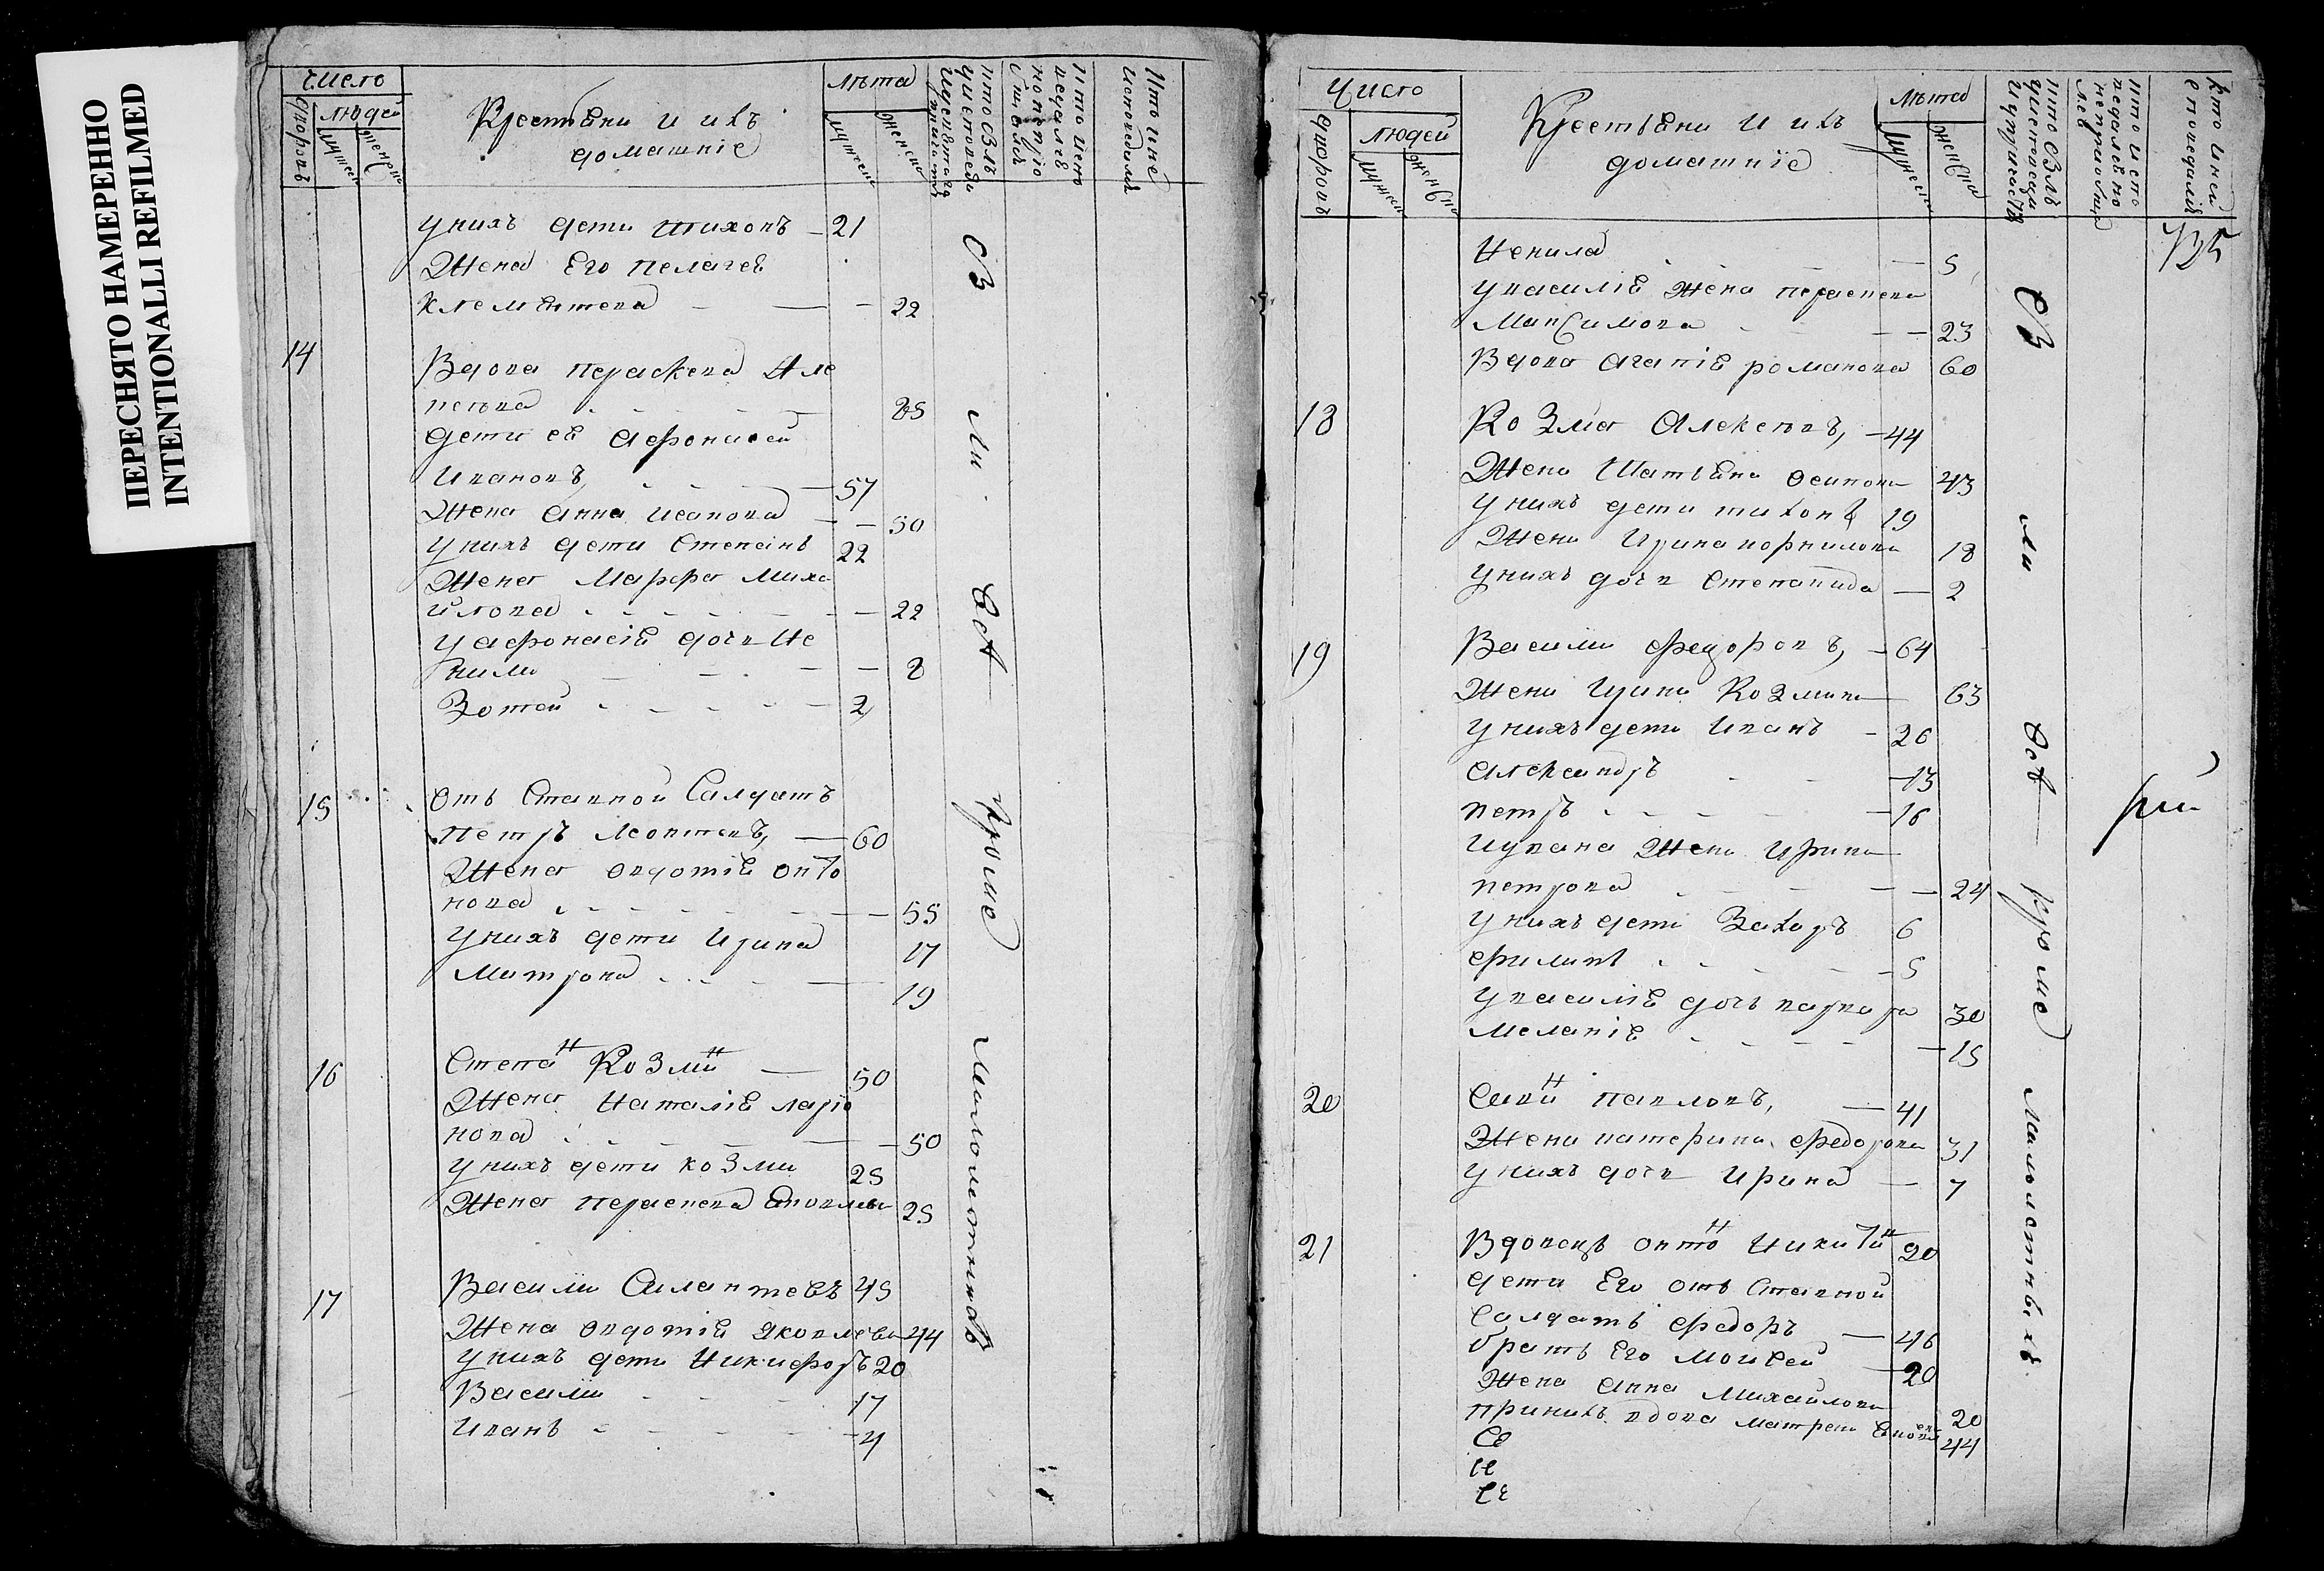 ПЕРЕСНЯТО НАМЕРЕННО
INTENTIONALLI REFILMED
Число
людей
Крестьяни и ихъ
домашніе
лѣта
унихъ дети тихонъ 21
Жена Его пелагеѣ
клементева 22
14
Вдова пераскева Але
85
дети еѣ афонасеи
Ивановъ, 57
Жена анна исапова 50
унихъ дети Степанъ 22
Жена Марфа Миха
илова 22
у афонасіѣ дочь Не
нила 8
Зотеи 2
15
отъ Ставной Салдатъ
петръ леонтевъ, 60
Жена овдотіѣ онто
нова 55
унихъ дети Ирина 17
Матрона 19
16
Степанъ Козминъ 50
Жена Наталіѣ ларіо
нова 50
унихъ дети козма 25
Жена пераскева 25
17
Васили Силантьевъ 45
Жена овдотіѣ яковлева 44
унихъ дети Никифоръ 20
Васили 17
Иванъ 4
Св ли всѣ кроме Малолетныхъ
Число
людей
Крестьяни и ихъ
домашніе
лѣта
135
Ненила 5
увасиліѣ Жена пераскева
Максимова 23
Вдова агапіѣ романова 60
18
Козма Алексевъ, 44
Жена Татьяна осипова 43
унихъ дети тихонъ 19
Жена Ирина корнилова 18
унихъ дочь Степанида 2
19
Васили федоровъ, 64
Жена Ирина Козмина 63
унихъ дети Иванъ 26
александръ 13
петръ 16
иувана Жена Ирина
петрова 24
унихъ дети Захаръ 6
филипъ 5
увасиліѣ дочь варвара 30
Меланіѣ 15
20
павловъ, 41
Жена катерина федорова 31
унихъ дочь Ирина 7
21
Вдовецъ онтонъ Никитинъ
дети Его отъ Ставной
Салдатъ федоръ 46
братъ Его Моисеи 20
Жена анна Михайлова 20
принихъ вдова матрена 44
Св ли всѣ кроме Малолетныхъ